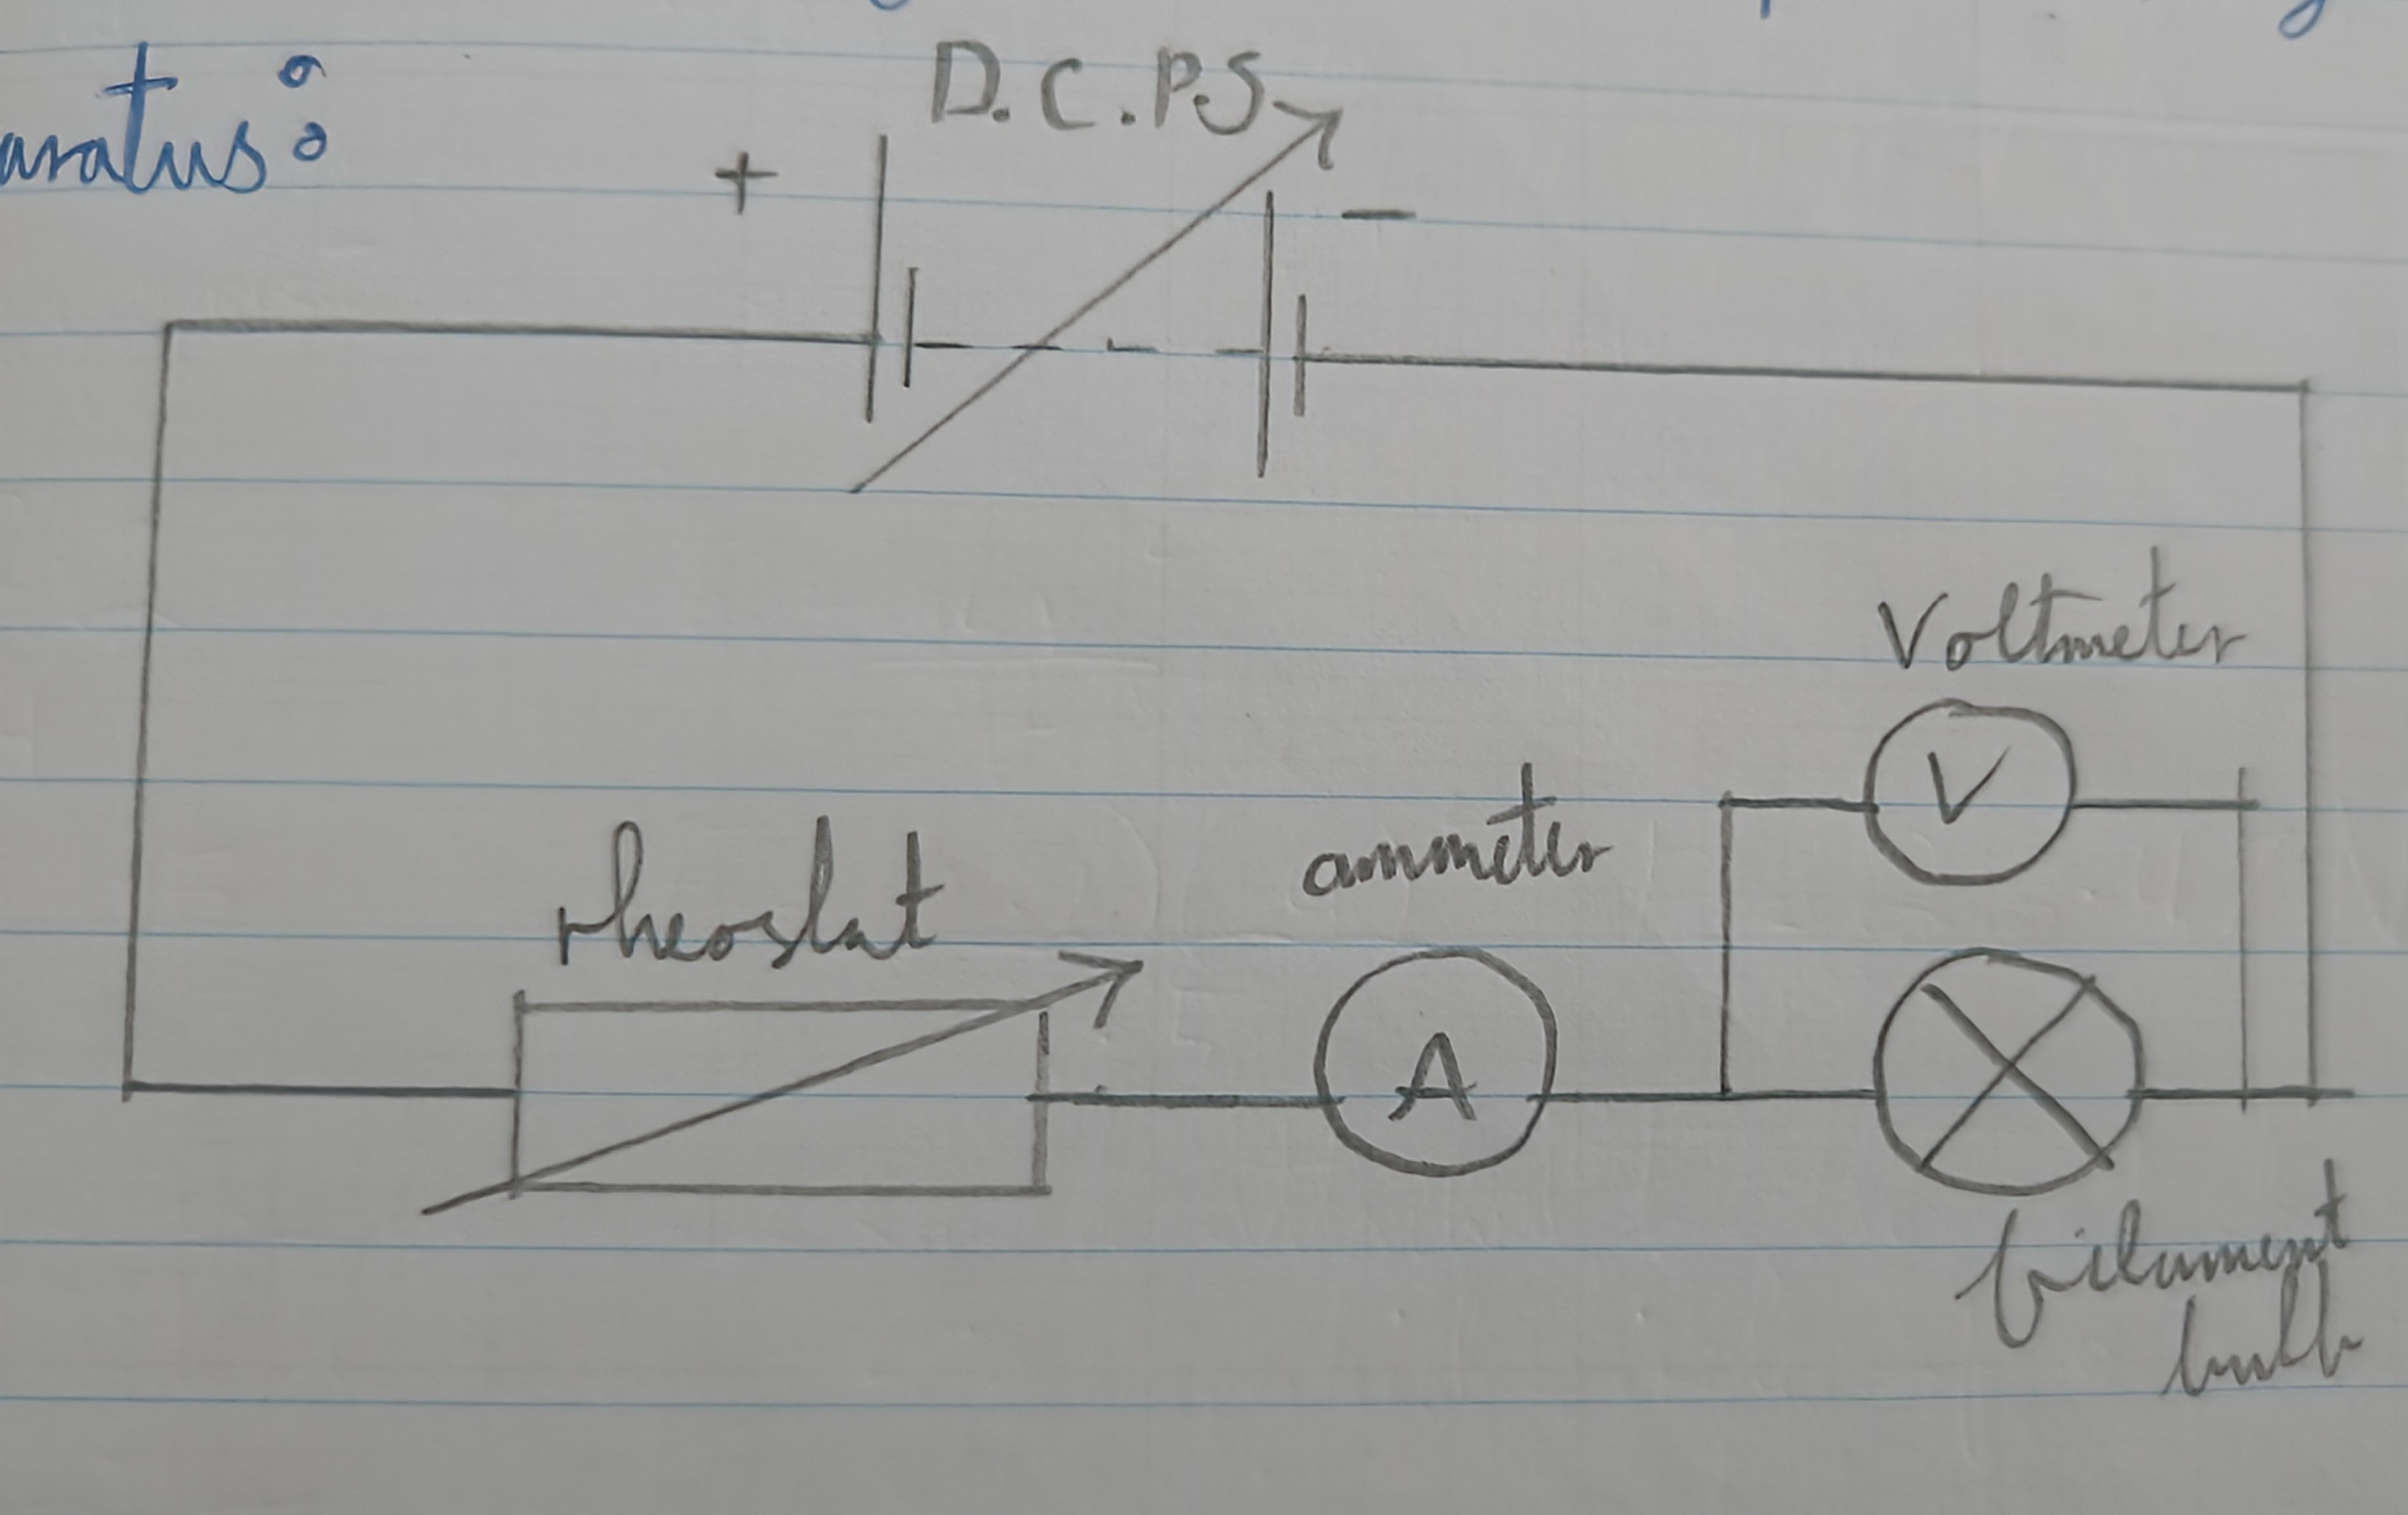 aratus:
D.C.P.S
+
-
Voltmeter
V
ammeter
rheostat
A
filument
bulb